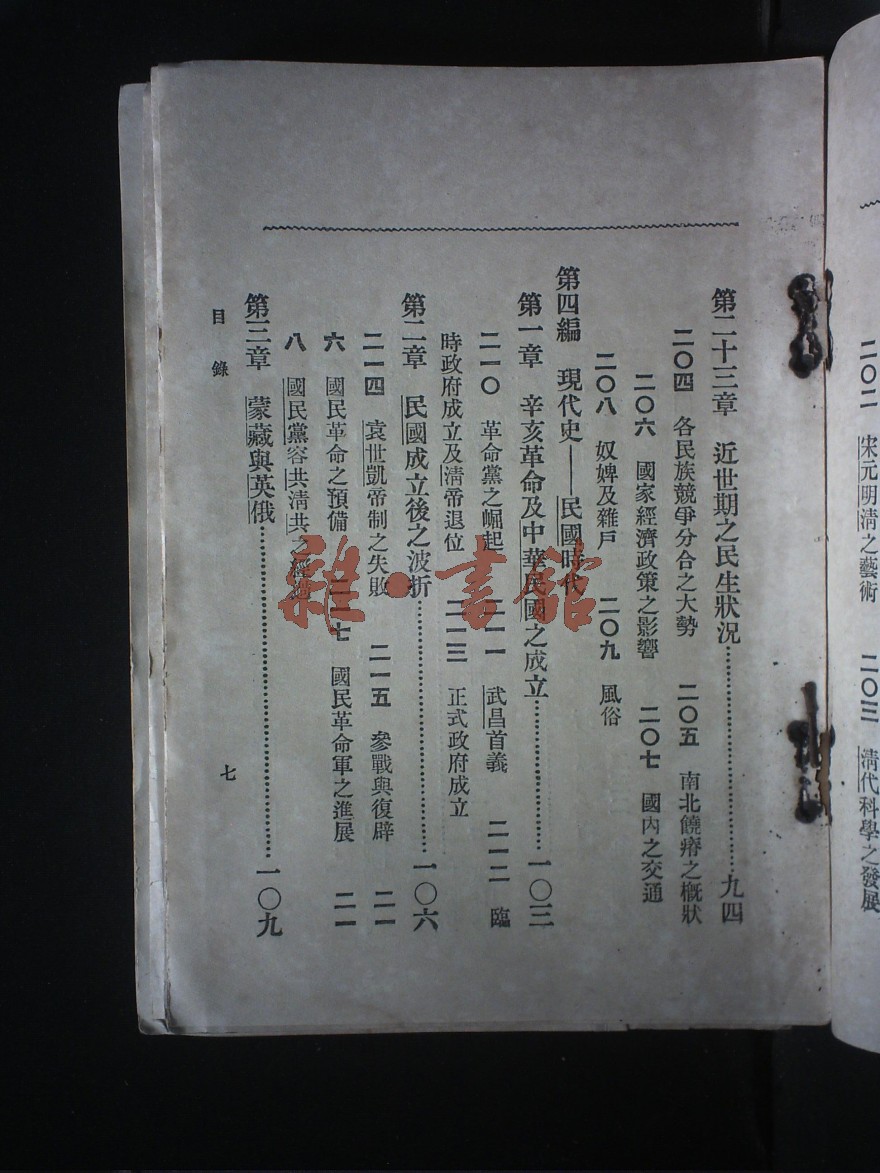 二〇二　宋元明清之藝術　二〇三　清代科學之發展
第二十三章　近世期之民生狀況……九四
二〇四　各民族競爭分合之大勢　二〇五　南北饒瘠之概狀
二〇六　國家經濟政策之影響　二〇七　國內之交通
二〇八　奴婢及雜戶　二〇九　風俗
第四編　現代史——民國時代
第一章　辛亥革命及中華民國之成立……一〇三
二一〇　革命黨之崛起　二一一　武昌首義　二一二　臨
時政府成立及清帝退位　二一三　正式政府成立
第二章　民國成立後之波折……一〇六
二一四　袁世凱帝制之失敗　二一五　參戰與復辟　二一
六　國民革命之預備　二一七　國民革命軍之進展　二一
八　國民黨容共清共之
第三章　蒙藏與英俄……一〇九
目錄
七
雜·書館